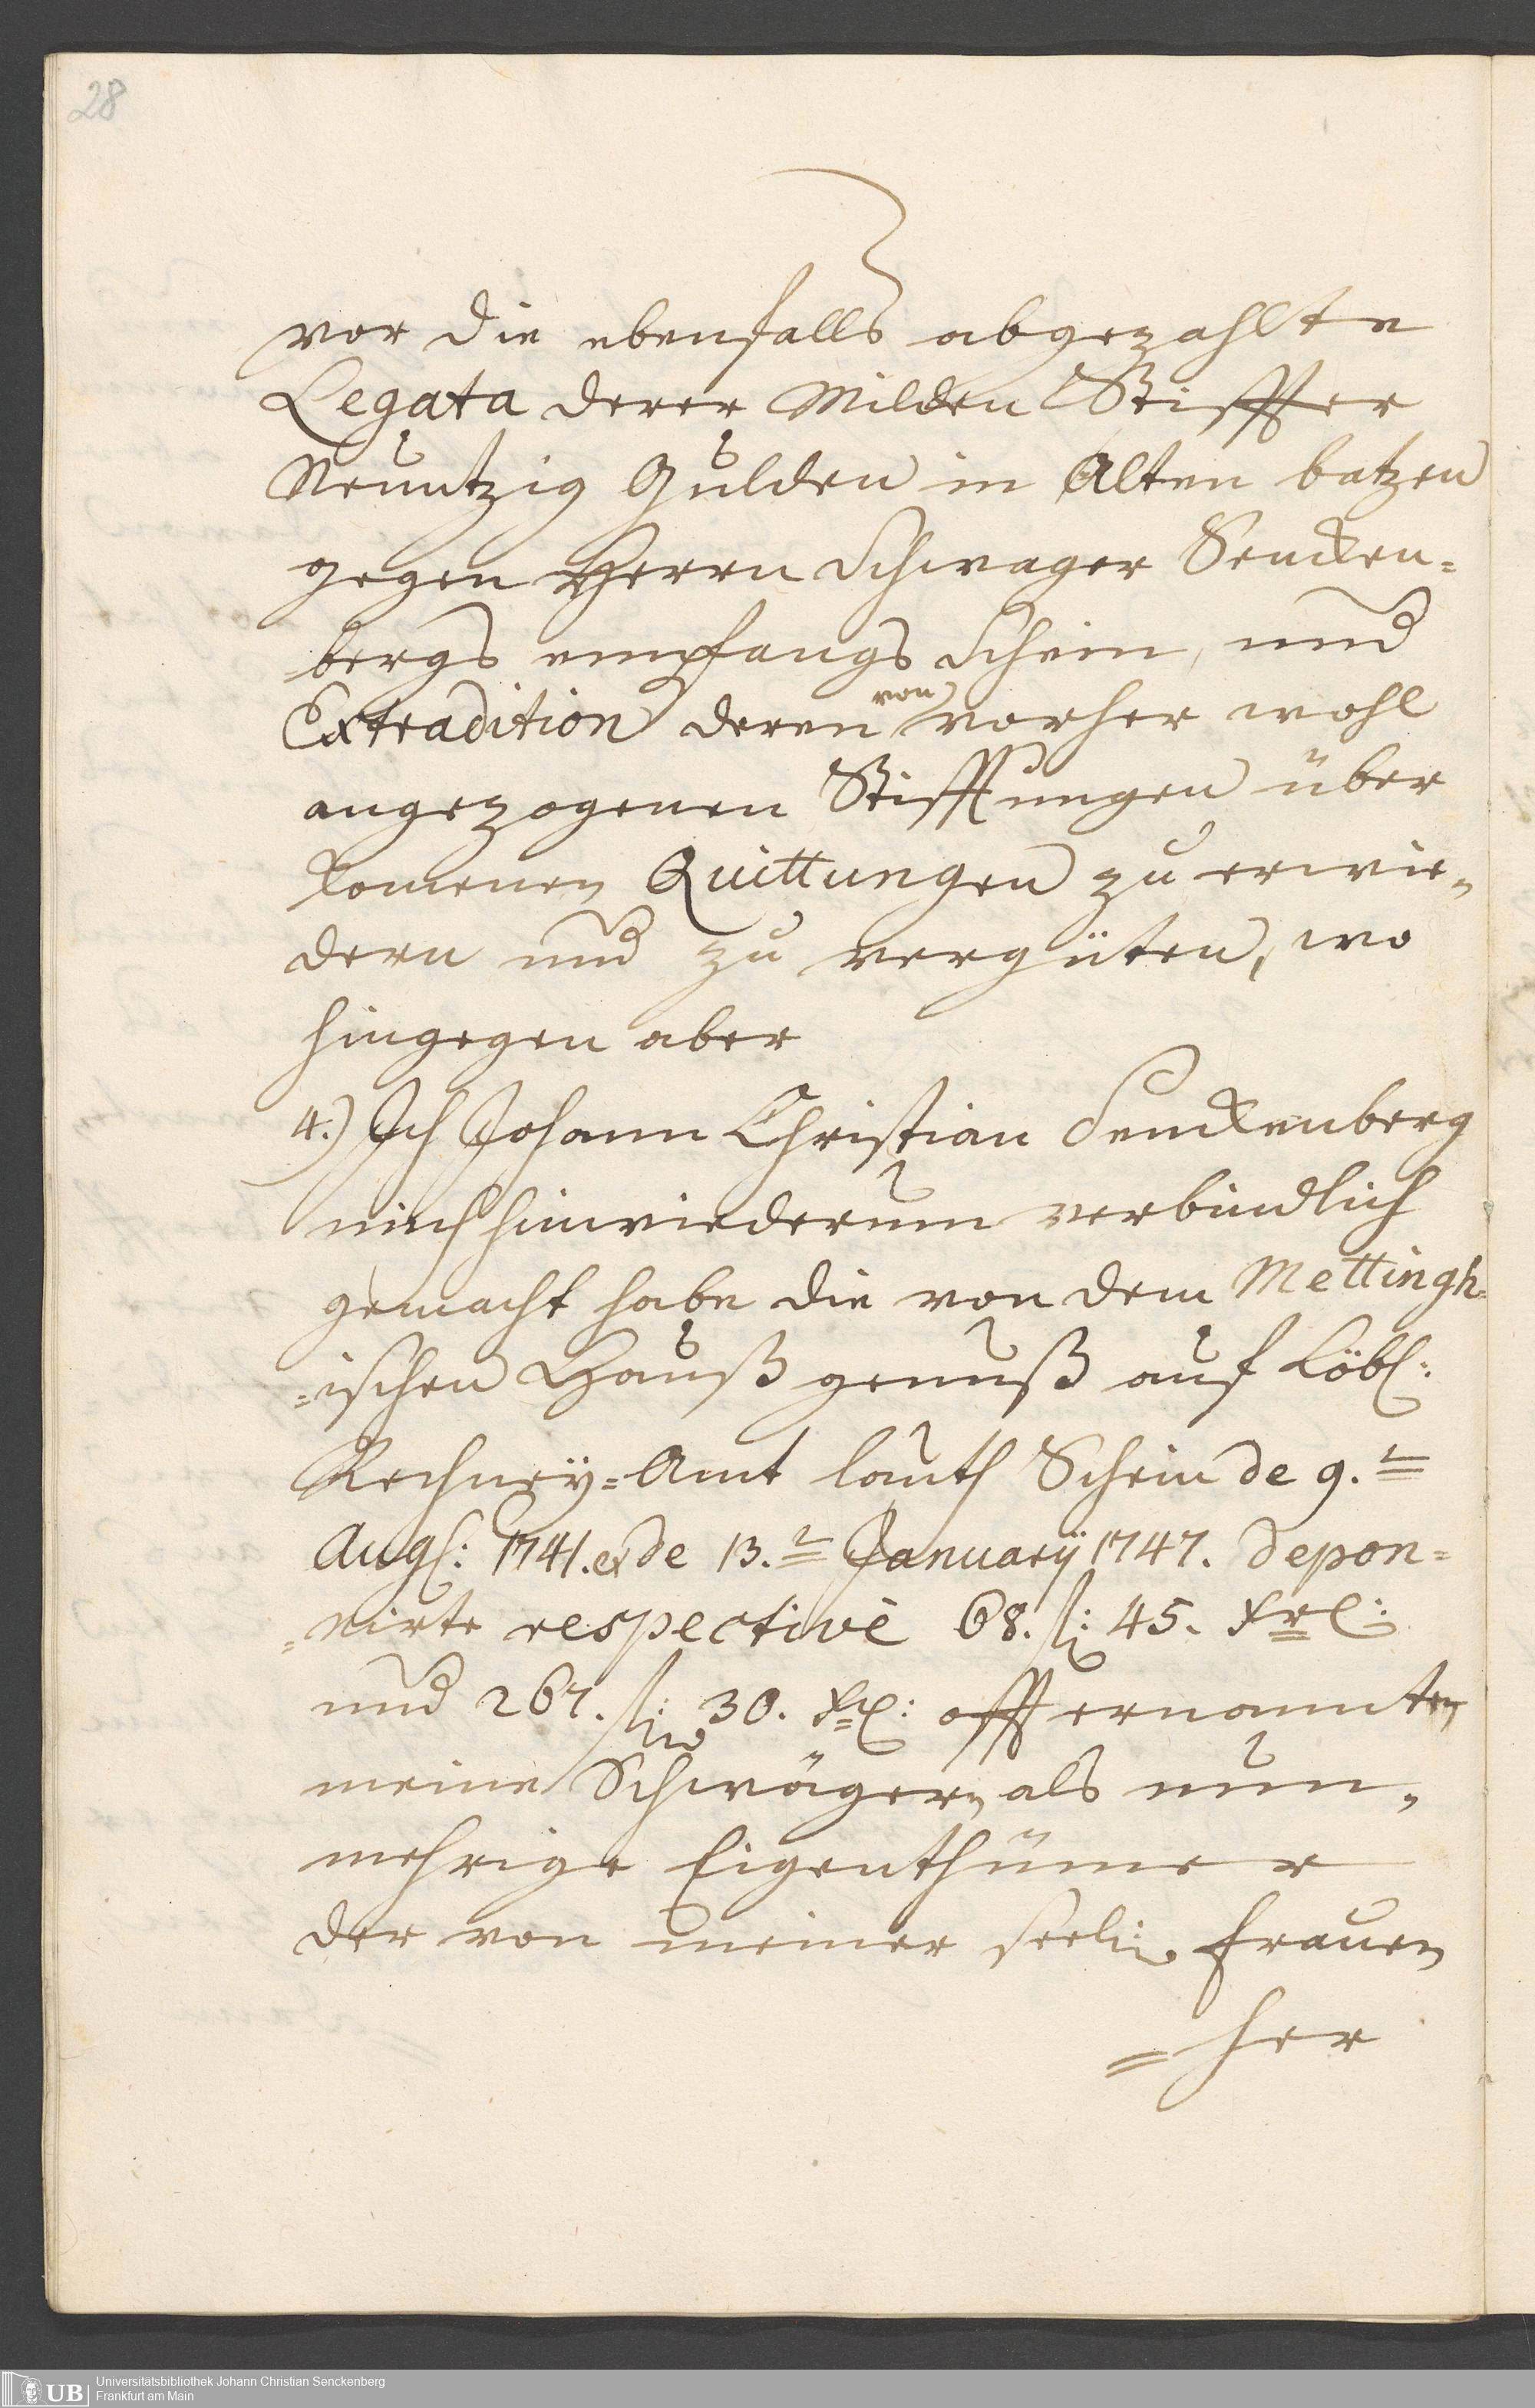 28
vor die ebenfalls abgezahlte
Legata derer Milden Stiffter
Neuntzig Gulden in Alten batzen
gegen Herrn Schwager Sencken=
bergs empfangs Schein, und
Extradition deren von vorher wohl
angezogenen Stifftungen über
komenen Quittungen zu erwie=
dern und zu vergüten, wo
hingegen aber
4.) Ich Johann Christian Senckenberg
mich hinwiederum verbindlich
gemacht habe die von dem Mettingh=
=ischen Hauß genuß auf Löbl:
Rechney=Amt lauth Schein de 9.t
Augs: 1741. & de 13.t January 1747. depon=
=nirte respectivè 68. fl: 45. Xrl:
und 267. fl: 30. Xrl: offt ernannten
meine Schwägern, als nun=
mehrige Eigenthümer
der von meiner seeli: Frauen
=her
Universitätsbibliothek Johann Christian Senckenberg
Frankfurt am Main
UB